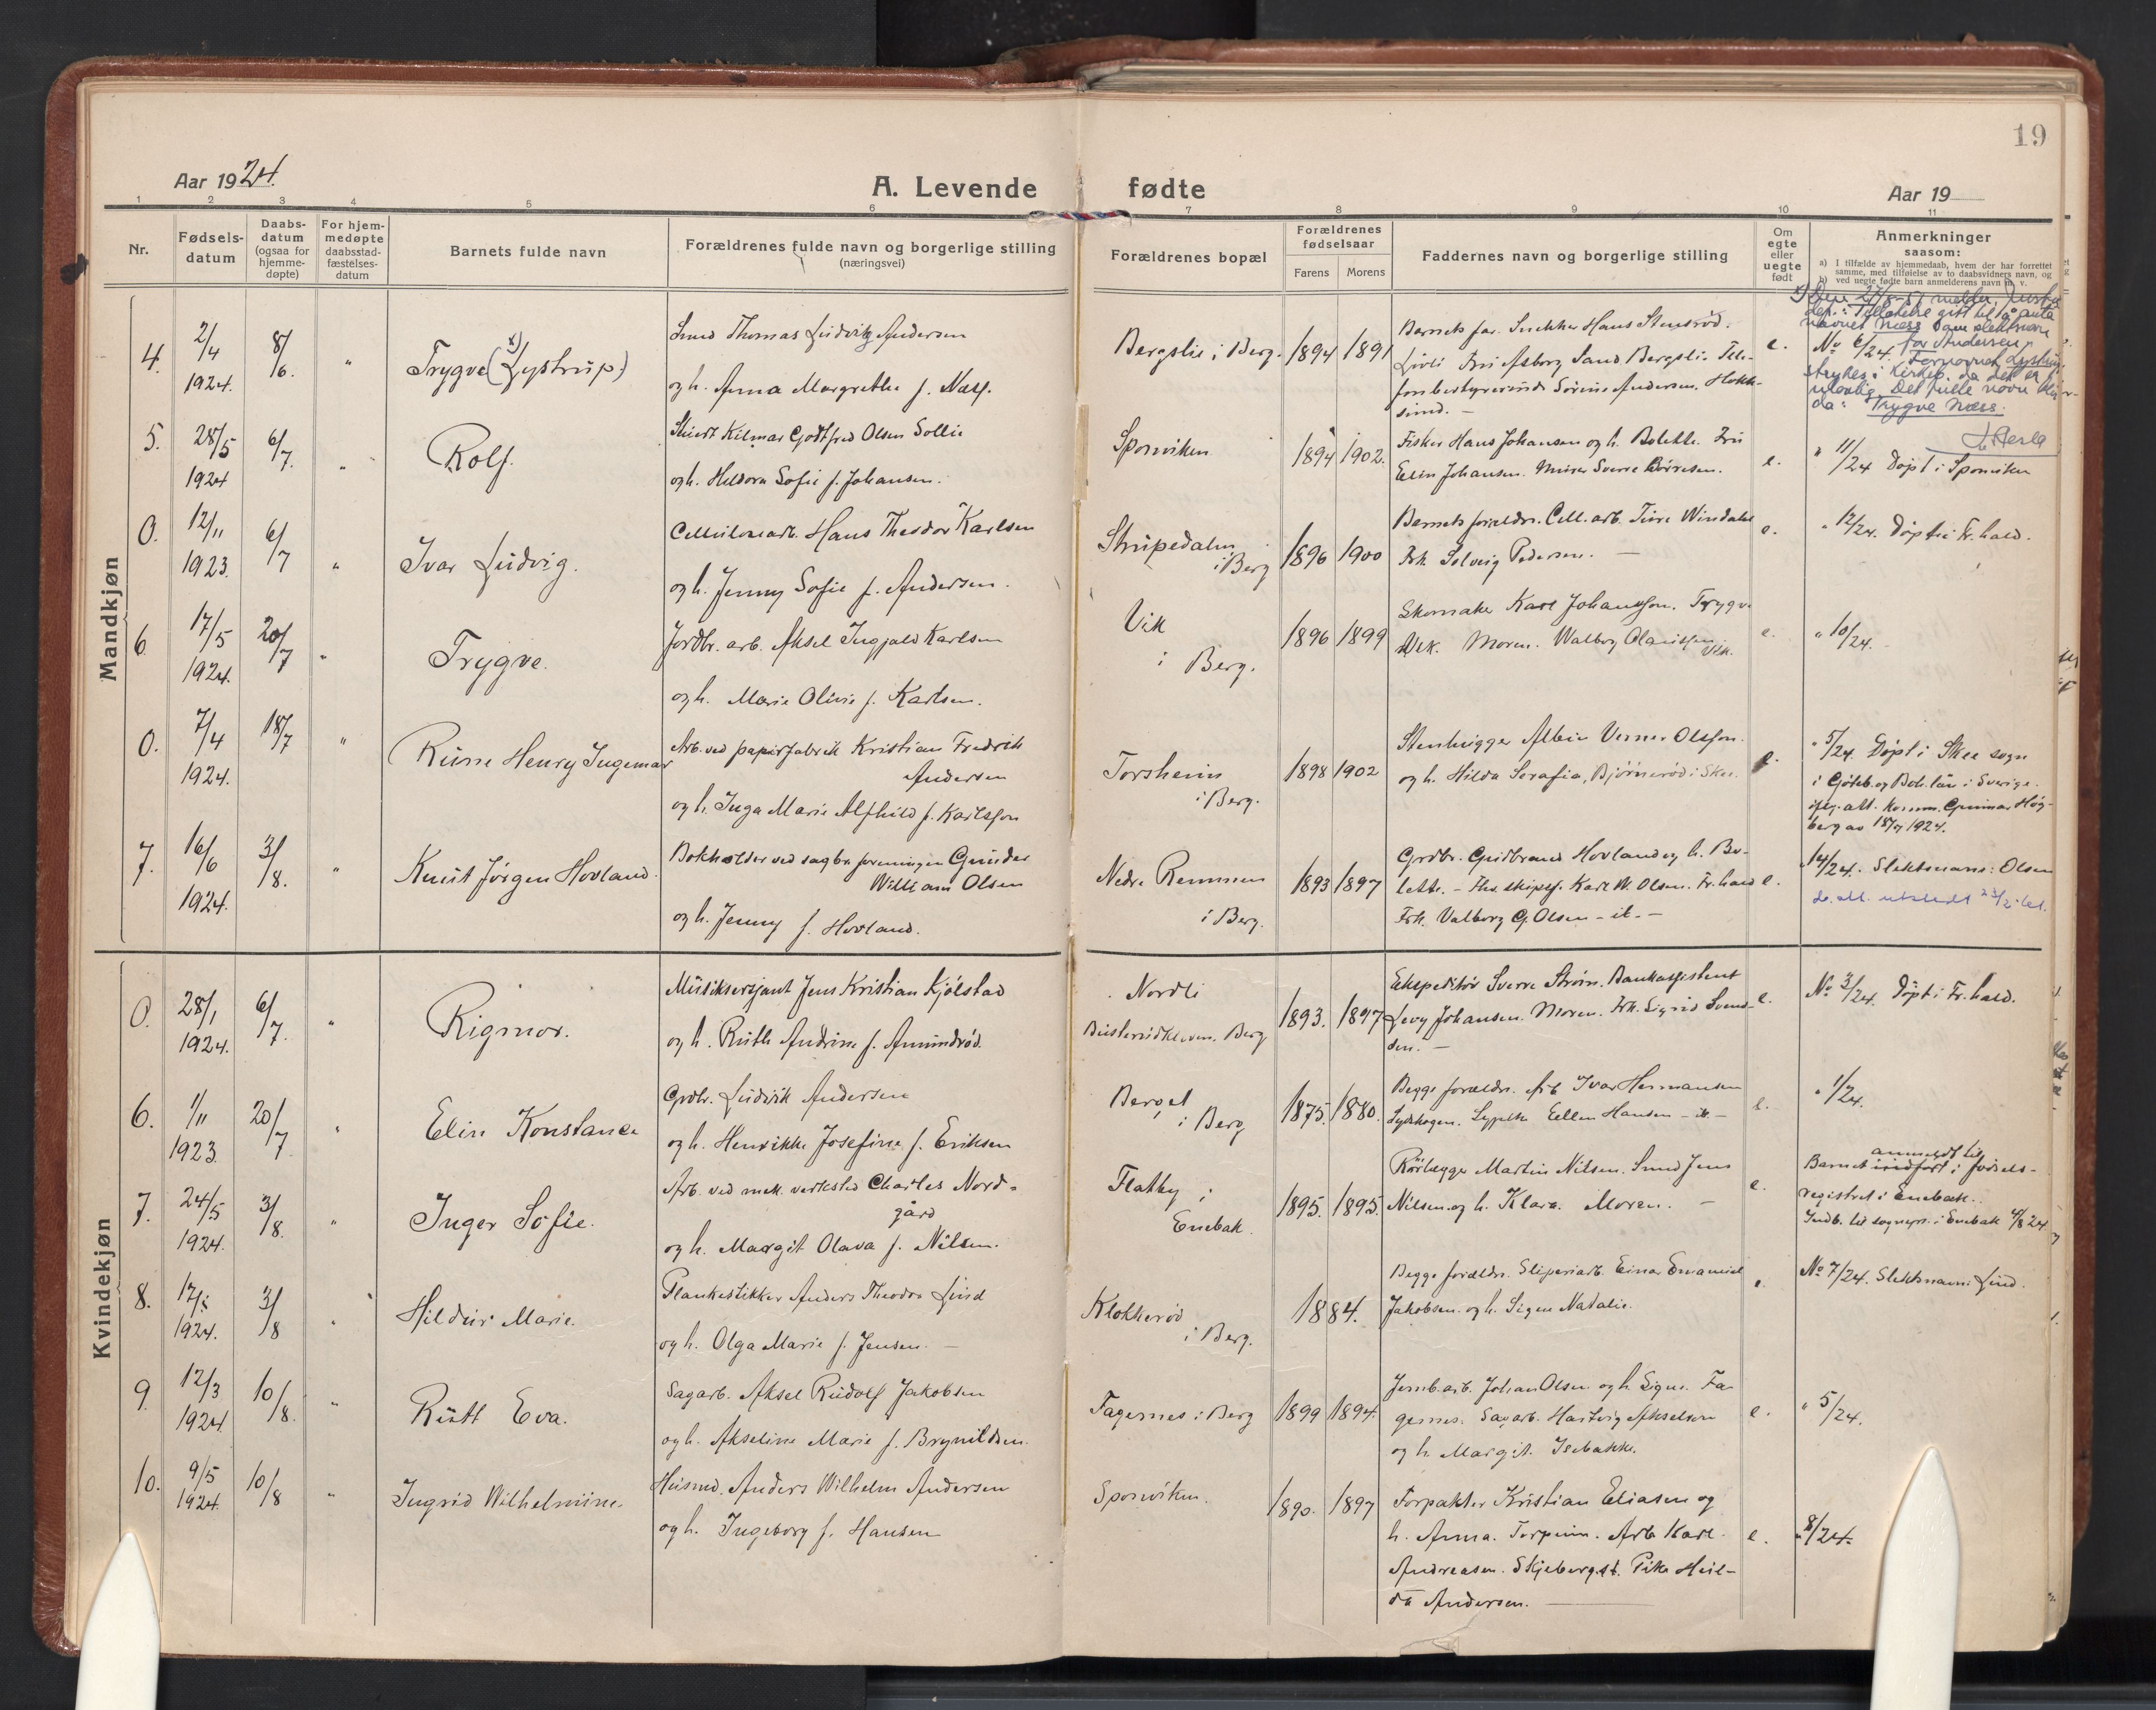 19
Aar 1924.
A. Levende fødte
Aar 19
1 2 3 4 5 6 7 8 9 10 11
Nr.
Fødsels-
datum
Daabs-
datum
(ogsaa for
hjemme-
døpte)
For hjem-
medøpte
daabsstad-
fæstelses-
datum
Barnets fulde navn
Forældrenes fulde navn og borgerlige stilling
(næringsvei)
Forældrenes bopæl
Forældrenes
fødselsaar
Farens Morens
Faddernes navn og borgerlige stilling
Om
egte
eller
uegte
født
Anmerkninger
saasom:
a) I tilfælde av hjemmedaab, hvem der har forrettet
samme, med tilføielse av to daabsvidners navn, og
b) ved uegte fødte barn anmelderens navn m. v.
Mandkjøn
4. 2/4 1924. 8/6. "
Trygve (x) Lystrup)
Smed Thomas Ludvig Andersen
og h. Anna Margrethe f. Næss.
Bergslie i Berg. 1894 1891
Barnets far. Snekker Hans Stensrød.
Lövli Fru Asborg Sand Bergsli. Tele-
fonbestyrerinde Sörine Andersen. Hokk-
sund. -
e.
x) Den 27/8-51 melder Justis
dep.: Tillatelse gitt til å anta
navnet Næss som slektsnavn
for Andersen.
No 6/24. Fornavnet Lystrup
strykes i kirkeb. da det er
ulovlig. Det fulle navn blir
da: Trygve Næss.
5. 28/5 1924 6/7. "
Rolf.
Stuert Hilmar Godtfred Olsen Sollie
og h. Heldora Sofie f. Johansen.
Sponviken 1894 1902.
Fisker Hans Johansen og h. Bolette. Fru
Elin Johansen. Murer Sverre Börresen.
e.
" 11/24 Döpt i Sponviken
0. 12/11 1923. 6/7 "
Ivar Ludvig.
Cellulosearb. Hans Theodor Karlsen
og h. Jenny Sofie f. Andersen.
Strupedalen
i Berg 1896 1900
Barnets foreldre. Cell. arb. Ture Windahl
Frk. Solveig Pedersen. -
e.
" 12/24. Döpt i Fr.hald.
6 17/5 1924. 20/7 "
Trygve.
Jordbr. arb. Aksel Ingjald Karlsen
og h. Marie Olivie f. Karlsen.
Vik
i Berg. 1896 1899
Skomaker Karl Johansson. Trygve
Vek. Moren. Walborg Olaussen
Vik.
e.
" 10/24.
0. 7/4 1924. 18/7 "
Rune Henry Ingemar
Arb. ved papirfabrik Kristian Fredrik
Andersen
og h. Inga Marie Alfhild f. Karlsson
Torsheim
i Berg. 1898 1902
Stenhugger Albin Verner Olsson.
og h. Hilda Serafia, Björnerød i Skee.
e.
" 5/24. Döpt i Skee sogn
i Göteb. og Boh. län i Sverige.
ifølg. att. Komm. Gunnar Hög-
berg av 18/7 1924.
7. 16/6 1924. 3/8. "
Knut Jörgen Hovland.
Bokholder ved sagbr. foreningen Gunder
William Olsen
og h. Jenny f. Hovland.
Nedre Remmen
i Berg. 1893 1897
Grdbr. Gudbrand Hovland og h. Bo-
lette. - Fhv. skipsf. Karl W. Olsen. Fr.hald
Frk. Valborg G. Olsen - it. -
e.
" 14/24. Slektsnavn: Olsen
Kvindekjøn
0. 28/1 1924. 6/7. "
Rigmor.
Musiksersjant Jens Kristian Kjölstad
og h. Ruth Andrine f. Amundröd.
Nordli
Busterudkleven. Berg 1893. 1897
Ekspeditör Sverre Ström. Bankassistent
Levy Johansen. Moren. Frk. Sigrid Svend-
sen. -
e.
No 3/24. Döpt i Fr.hald.
6. 1/11 1923. 20/7 "
Elin Konstance
Grdbr. Ludvik Andersen
og h. Henrikke Josefine f. Eriksen
Berget
i Berg 1875. 1880.
Begge foreldre. Arb Ivar Hermansen
Sydskogen. Sypike Ellen Hansen - it -
e.
" 1/24.
7. 24/5 1924. 3/8. "
Inger Sofie.
Arb. ved mek. verksted Charles Nord-
gård
og h. Margit Olava f. Nilsen.
Flatby i
Enebak. 1895. 1895.
Rörlegger Martin Nilsen. Smed Jens
Nilsen og h. Klara. Moren. -
e.
anmeldt til
Barnet indfört i födsels-
registret i Enebak.
Indb. til sognepr. i Enebak 4/8 24.
8. 17/5 1924. 3/8 "
Hildur Marie.
Plankestikker Anders Theodor Lund
og h. Olga Marie f. Jensen. -
Klokkeröd
i Berg. 1884.
Begge foreldre. Sliperiarb. Einar Emanuel
Jakobsen og h. Signe Natalie.
e.
No 7/24. Slektsnavn: Lund.
9. 12/3 1924. 10/8. "
Rutt Eva.
Sagarb. Aksel Rudolf Jakobsen
og h. Akseline Marie f. Brynildsen.
Fagernes i Berg 1899 1894.
Jernb. arb. Johan Olsen og h. Signe. Fa-
gernes. Sagarb. Hartvig Akselsen
og h Margit. Isebakke.
e.
" 5/24.
10. 9/5 1924. 10/8 "
Ingrid Wilhelmine.
Husmd. Anders Wilhelm Andersen
og h. Ingeborg f. Hansen
Sponviken. 1890. 1897
Forpakter Kristian Eliasen og
h. Anna. Torpum. Arb Karl
Andreasen. Skjeberg st. Pike Hul-
da Andersen.
e.
" 8/24.